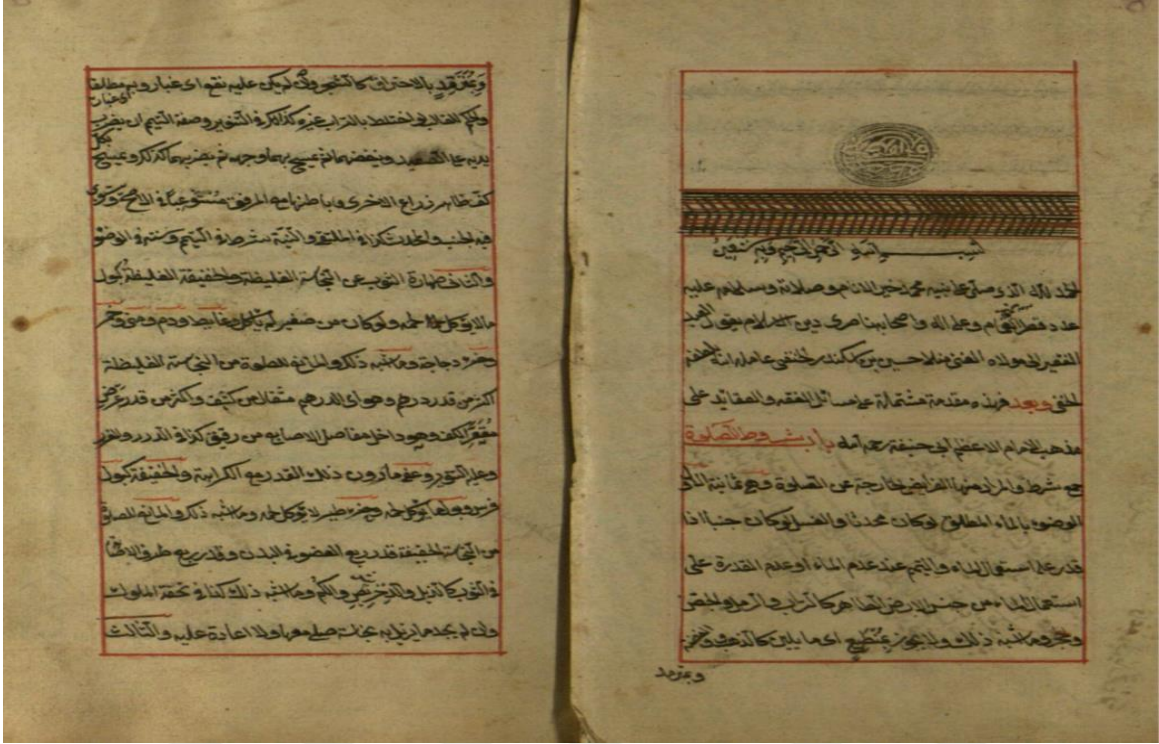 بسم الله الرحمن الرحيم وبه نستعين
الحمد لله الذي صلى على نبيه محمد خير الانام وصلاته وسلامه عليه
عدد قطر الغمام وعلى اله واصحابه ناصري دين الاسلام يقول العبد
الفقير الى مولاه الغني منلا حسين بن اسكندر الحنفي عامله الله بلطفه
الخفي وبعد فهذه مقدمة مشتملة على مسائل الفقه والعقائد على
مذهب الامام الاعظم ابي حنيفة رحمه الله باب شروط الصلوة
جمع شرط والمراد منها الفرايض خارجة عن الصلوة وهي ثمانية الاول
الوضوء بالماء المطلق لو كان محدثا والغسل لو كان جنبا اذا
قدر على استعمال الماء والتيمم عند عدم الماء او عدم القدرة على
استعمال الماء من جنس الارض الطاهر كالتراب والرمل والجص
وحجر وما اشبه ذلك ولا يجوز بمنطبع اي ما يلين كالذهب
وبمترمد
وبمترمد بالاحتراق كالشجر ولو لم يكن عليه نقع اي غبار وبه مطلقا
اي غبار
والحكم للغالب لو اختلط بالتراب غيره كذا ذكره في التنوير وصفة التيمم ان يضرب
يديه على الصعيد وينفضهما ثم يمسح بهما وجهه ثم يضربهما كذلك ويمسح
بكل
كف ظاهر ذراع الاخرى وباطنها مع المرفق مستوعبا في الاصح ويستوي
فيه الجنب والمحدث كذا في الملتقى والنية شرط في التيمم وسنة في الوضوء
والثاني طهارة الثوب عن النجاسة الغليظة والخفيفة الغليظة كبول
ما لا يؤكل لحمه ولو كان من صغير لم ياكل وغائط ودم ومني وخمر
وخرء دجاجة وما اشبه ذلك والمانع للصلوة من النجاسة الغليظة
اكثر من قدر درهم وهو اي الدرهم مثقال من كثيف واكثر من قدر عرض
مقعر الكف وهو داخل مفاصل الاصابع من رقيق كذا في الدرر والغرر
وعليه التنوير وعفي ما دون ذلك القدر مع الكراهة والخفيفة كبول
فرس وبول ما يؤكل لحمه وخرء طير لا يؤكل لحمه وما اشبه ذلك والمانع للصلوة
من النجاسة الخفيفة قدر ربع العضو في البدن وقدر ربع طرف
في الثوب كالذيل والدخريص والكم وما اشبه ذلك كذا في تحفة الملوك
وان لم يجد ما يزيل به نجاسة صلى معها ولا اعادة عليه والثالث